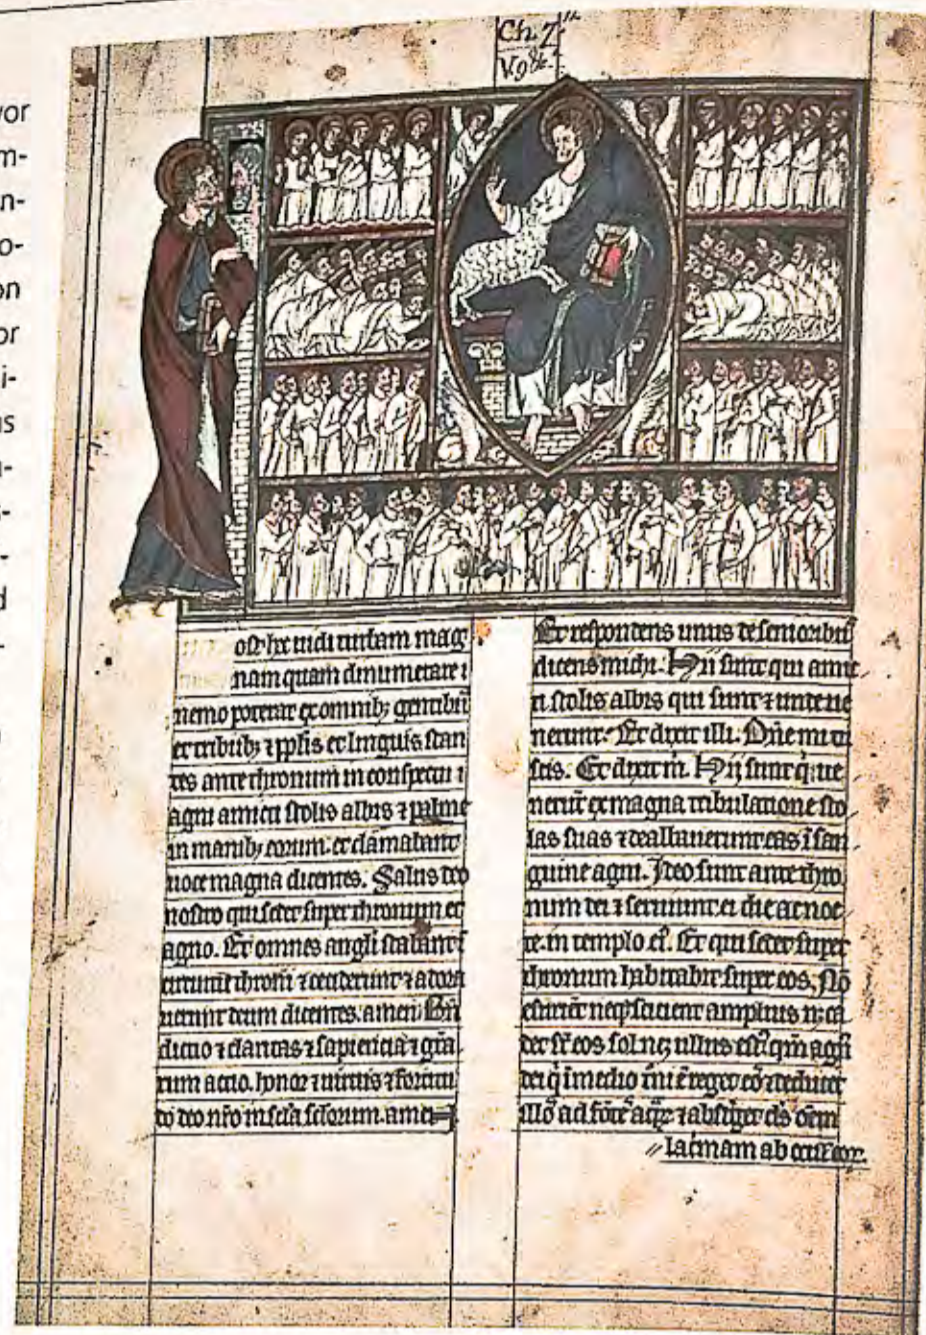 vor
m-
n-
o-
on
or
i-
as
i-
-
d
-
Ch. 7
V. 9 &c.
ost hec uidi turbam mag
nam quam dinumerare
nemo poterat ex omnibꝫ gentibꝰ
et tribubꝫ ⁊ pplis et linguis stan
tes ante thronum in conspectu
agni amicti stolis albis ⁊ palme
in manibꝫ eorum. et clamabant
uoce magna dicentes. Salus deo
nostro qui sedet super thronum et
agno. Et omnes angli stabant ī
circuitu throni ⁊ ceciderunt ⁊ adora
uerunt deum dicentes. amen. Bn̄
dictio ⁊ claritas ⁊ sapiencia ⁊ gr̄a
rum actio. honor ⁊ uirtus ⁊ fortitu
do deo nr̄o in scl̄a scl̄orum. amen
Et respondens unus de senioribus
dicens michi. Hii sunt qui amic
ti stolis albis qui sunt ⁊ unde ue
nerunt. Et dixi illi. Dn̄e mi tu
scis. Et dixit m̄. Hii sunt q̇ ue
nerūt ex magna tribulatione sto
las suas ⁊ dealbauerunt eas ī san
guine agni. Ideo sunt ante thro
num dei ⁊ seruiunt ei die ac noc
te in templo eiꝰ. Et qui sedet super
thronum habitabit super eos. Nō
esuriēt neqꝫ scicient amplius n̄ ca
det sr̄ eos sol nꝫ ullus estꝰ qm̄ agn̄
dei q̇ ī medio
illoˢ ad fōtē aq̄ꝝ ⁊ absterget ds̄ oēm
lac̄mam ab